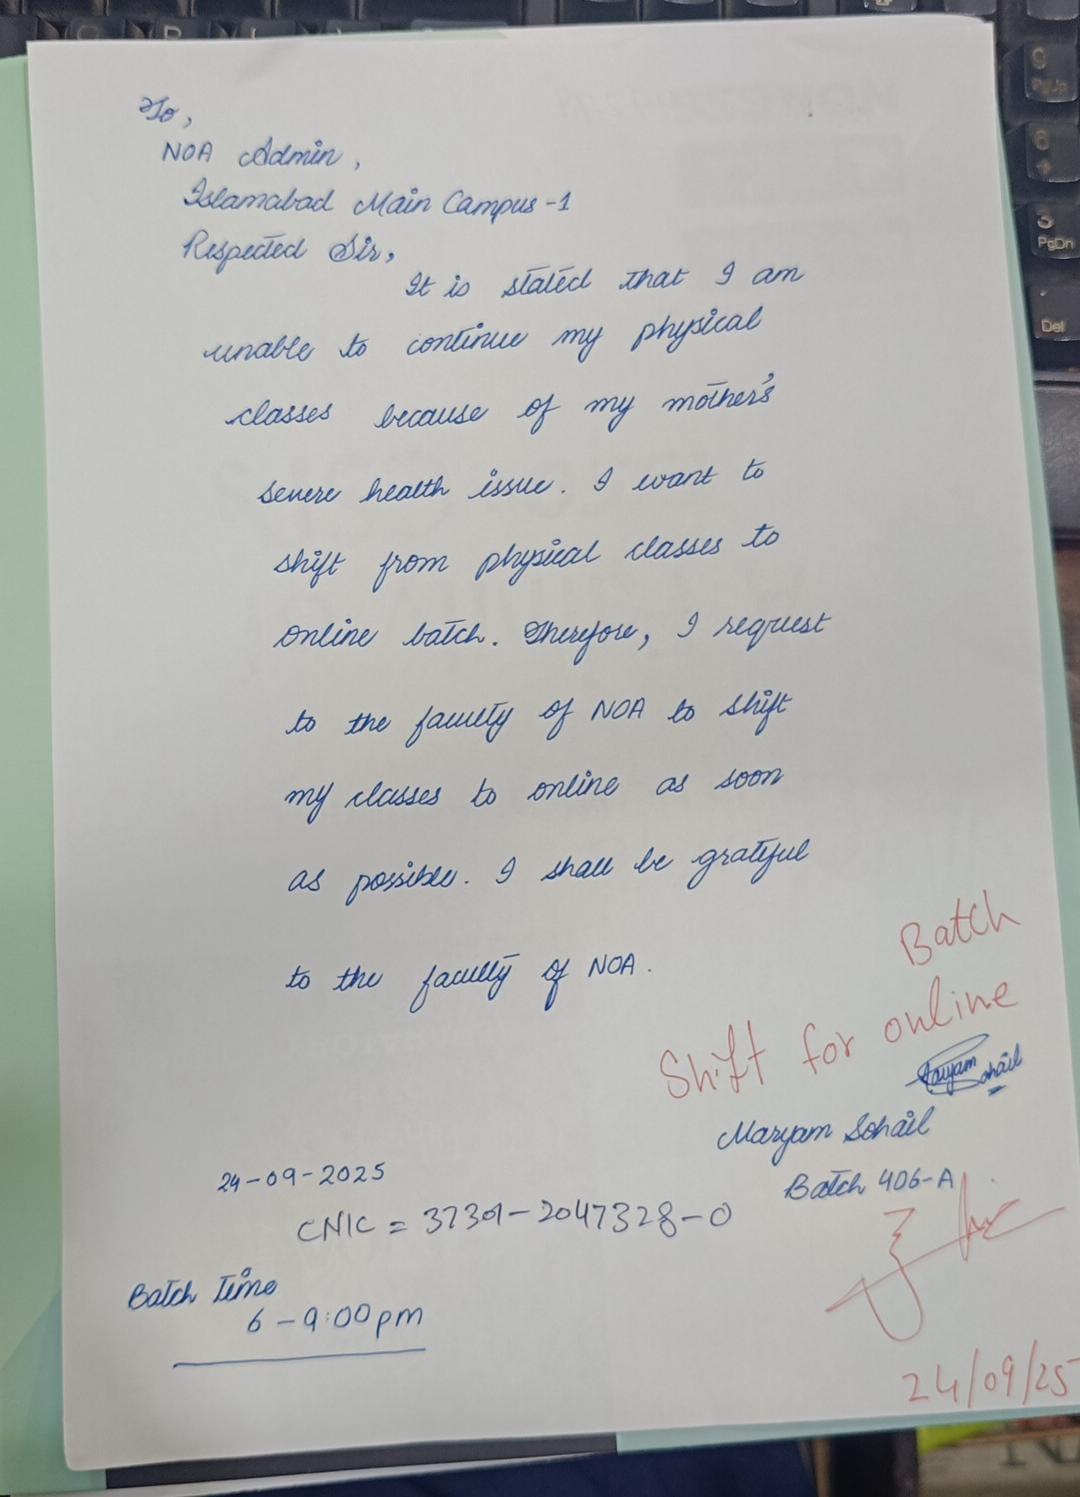 To,
NOA Admin,
Islamabad Main Campus-1
Respected Sir,
It is stated that I am
unable to continue my physical
classes because of my mother's
severe health issue. I want to
shift from physical classes to
online batch. Therefore, I request
to the faculty of NOA to shift
my classes to online as soon
as possible. I shall be grateful
to the faculty of NOA.
Batch
Shift for online
Maryam Sohail
Maryam Sohail
Batch 406-A
24-09-2025
CNIC = 37301-2047328-0
Batch Time
6-9:00pm
24/09/25
9
PgUp
6
3
PgDn
Del